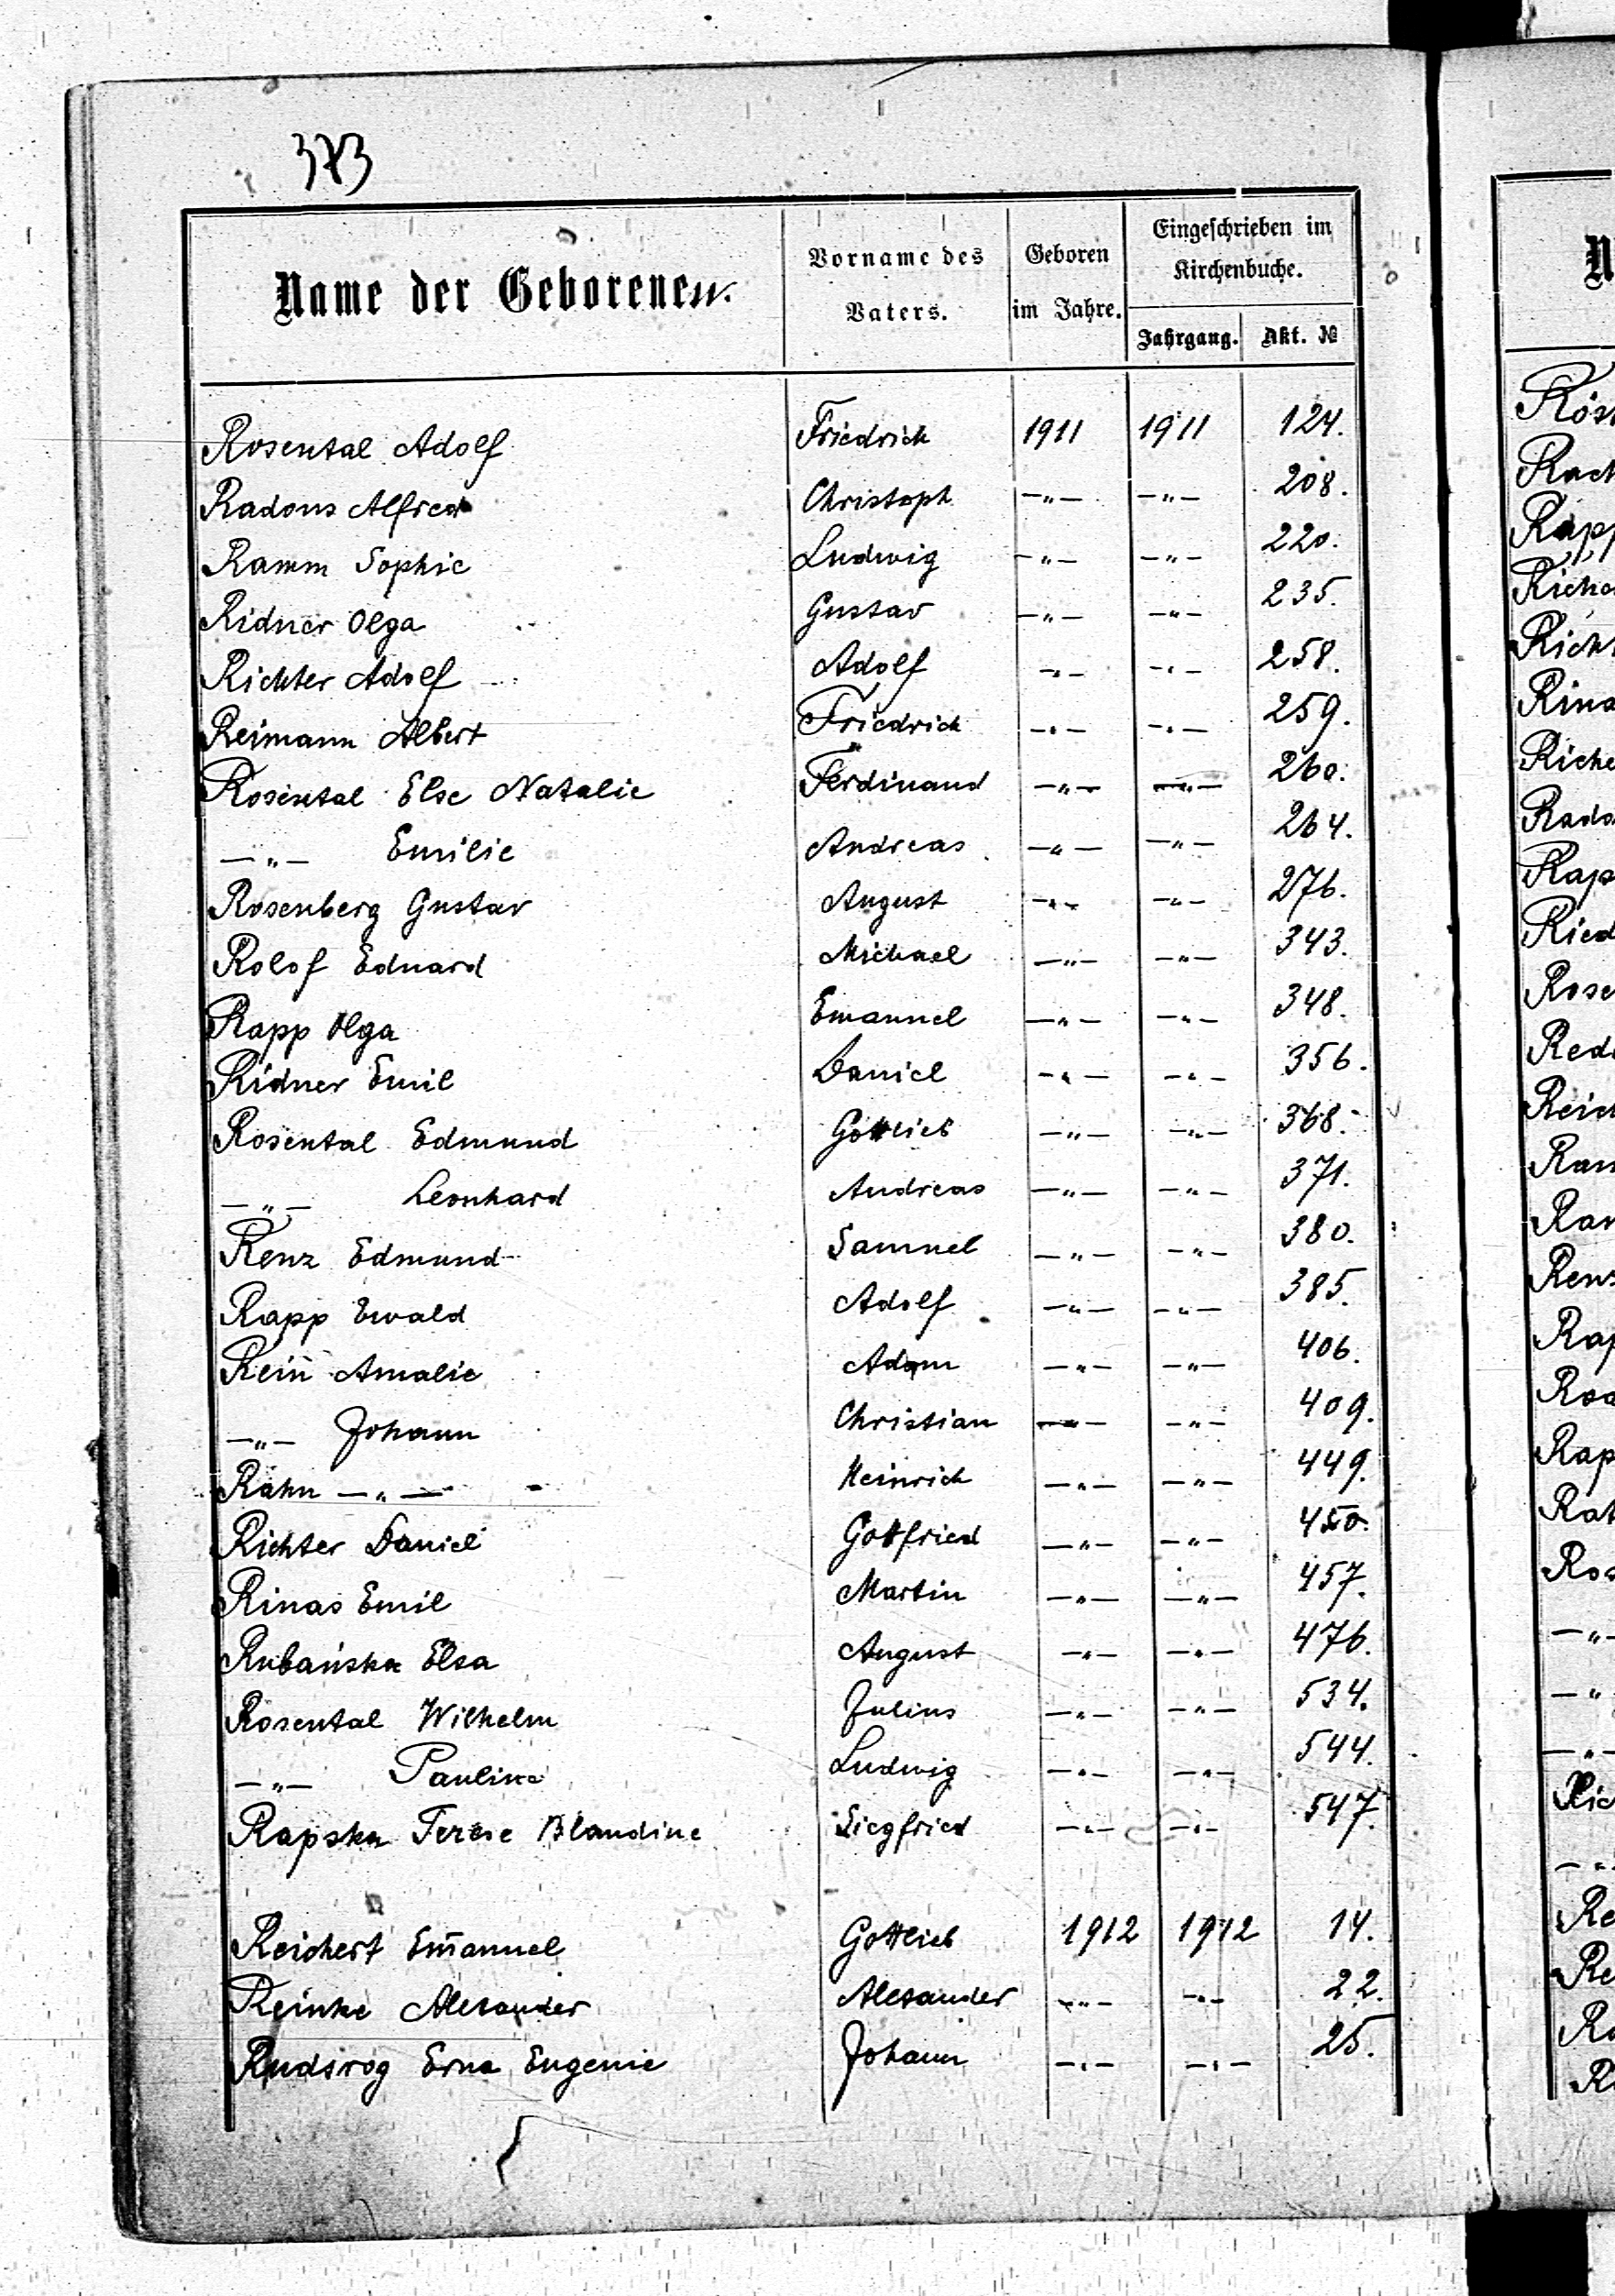 373
Name der Geborenen.
Vorname des Vaters.
Geboren im Jahre.
Eingeschrieben im Kirchenbuche.
Jahrgang. Akt. №
Rosental Adolf Friedrich 1911 1911 124.
Radons Alfred Christoph —„— —„— 208.
Ramm Sophie Ludwig —„— —„— 220.
Ridner Olga Gustav —„— —„— 235.
Richter Adolf Adolf —„— —„— 258.
Reimann Albert Friedrich —„— —„— 259.
Rosental Else Natalie Ferdinand —„— —„— 260.
—„— Emilie Andreas —„— —„— 264.
Rosenberg Gustav August —„— —„— 276.
Rolof Eduard Michael —„— —„— 343.
Rapp Olga Emanuel —„— —„— 348.
Ridner Emil Daniel —„— —„— 356.
Rosental Edmund Gottlieb —„— —„— 368.
—„— Leonhard Andreas —„— —„— 371.
Renz Edmund Samuel —„— —„— 380.
Rapp Ewald Adolf —„— —„— 385.
Rein Amalie Adam —„— —„— 406.
—„— Johann Christian —„— —„— 409.
Rahn —„— Heinrich —„— —„— 449.
Richter Daniel Gottfried —„— —„— 450.
Rinas Emil Martin —„— —„— 457.
Rubańska Elsa August —„— —„— 476.
Rosental Wilhelm Julius —„— —„— 534.
—„— Pauline Ludwig —„— —„— 544.
Rapska Terese Blandine Siegfried —„— —„— 547.
Reichert Em̄anuel Gottlieb 1912 1912 14.
Reinke Alexander Alexander —„— —„— 22.
Rudsrog Erna Eugenie Johann —„— —„— 25.